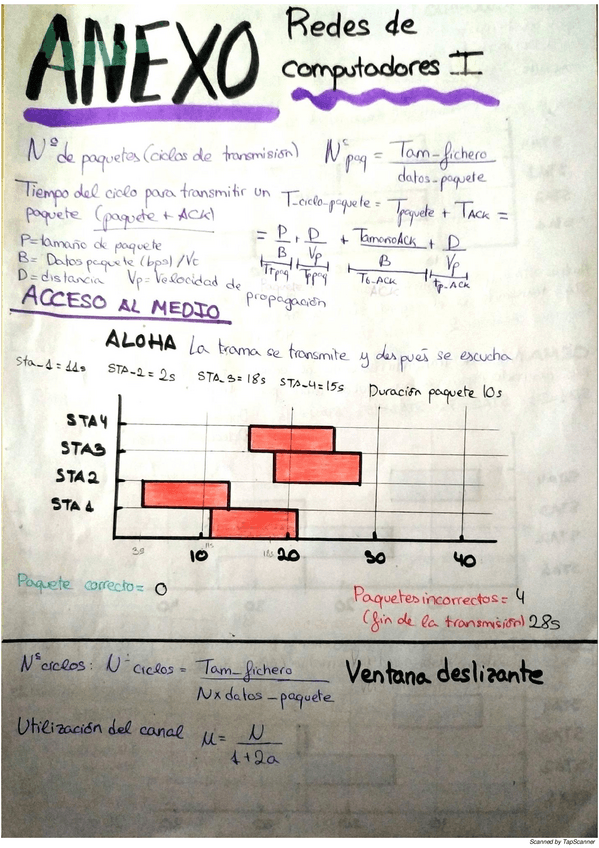 ANEXO
Redes de
computadores I
Nº de paquetes (ciclos de transmisión) Nº paq = Tam-fichero / datos-paquete
Tiempo del ciclo para transmitir un
paquete (paquete + ACK)
T-ciclo-paquete = Tpaquete + TACK =
= P/B + D/Vp + TamañoACK/B + D/Vp
Tb-ACK tp-ACK
P=tamaño de paquete
B= Datos paquete (bps) / Vc
D=distancia Vp=Velocidad de
propagación
ACCESO AL MEDIO
ALOHA La trama se transmite y después se escucha
Sta_1=11s STA_2=2s STA_3=18s STA_4=15s Duración paquete 10s
STA4
STA3
STA2
STA1
3s 11s 18s
10 20 30 40
Paquete correcto= 0
Paquetes incorrectos= 4
(fin de la transmisión) 28s
Nº ciclos: Nº ciclos = Tam-fichero / N x datos-paquete
Ventana deslizante
Utilización del canal μ = N / 1+2a
Scanned by TapScanner